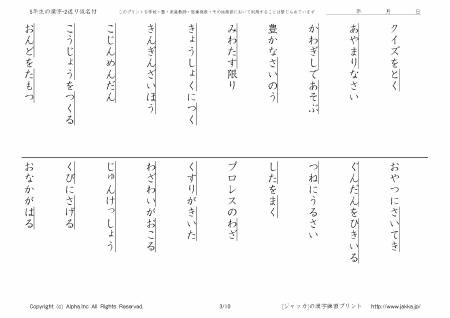 5年生の漢字-2送り仮名付
このプリントを学校・塾・家庭教師・医療機関・その他施設において利用することは禁じられています
年 月 日
クイズをとく
あやまりなさい
かわぎしであそぶ
豊かなさいのう
みわたす限り
きょうしょくにつく
きんぎんざいほう
こじんめんだん
こうじょうをつくる
おんどをたもつ
おやつにさいてき
ぐんだんをひきいる
つねにうるさい
したをまく
プロレスのわざ
くすりがきいた
わざわいがおこる
じゅんけっしょう
くびにさげる
おなかがはる
Copyright (c) Alpha.Inc All Rights Reserved.
3/10
[ジャッカ]の漢字練習プリント http://www.jakka.jp/